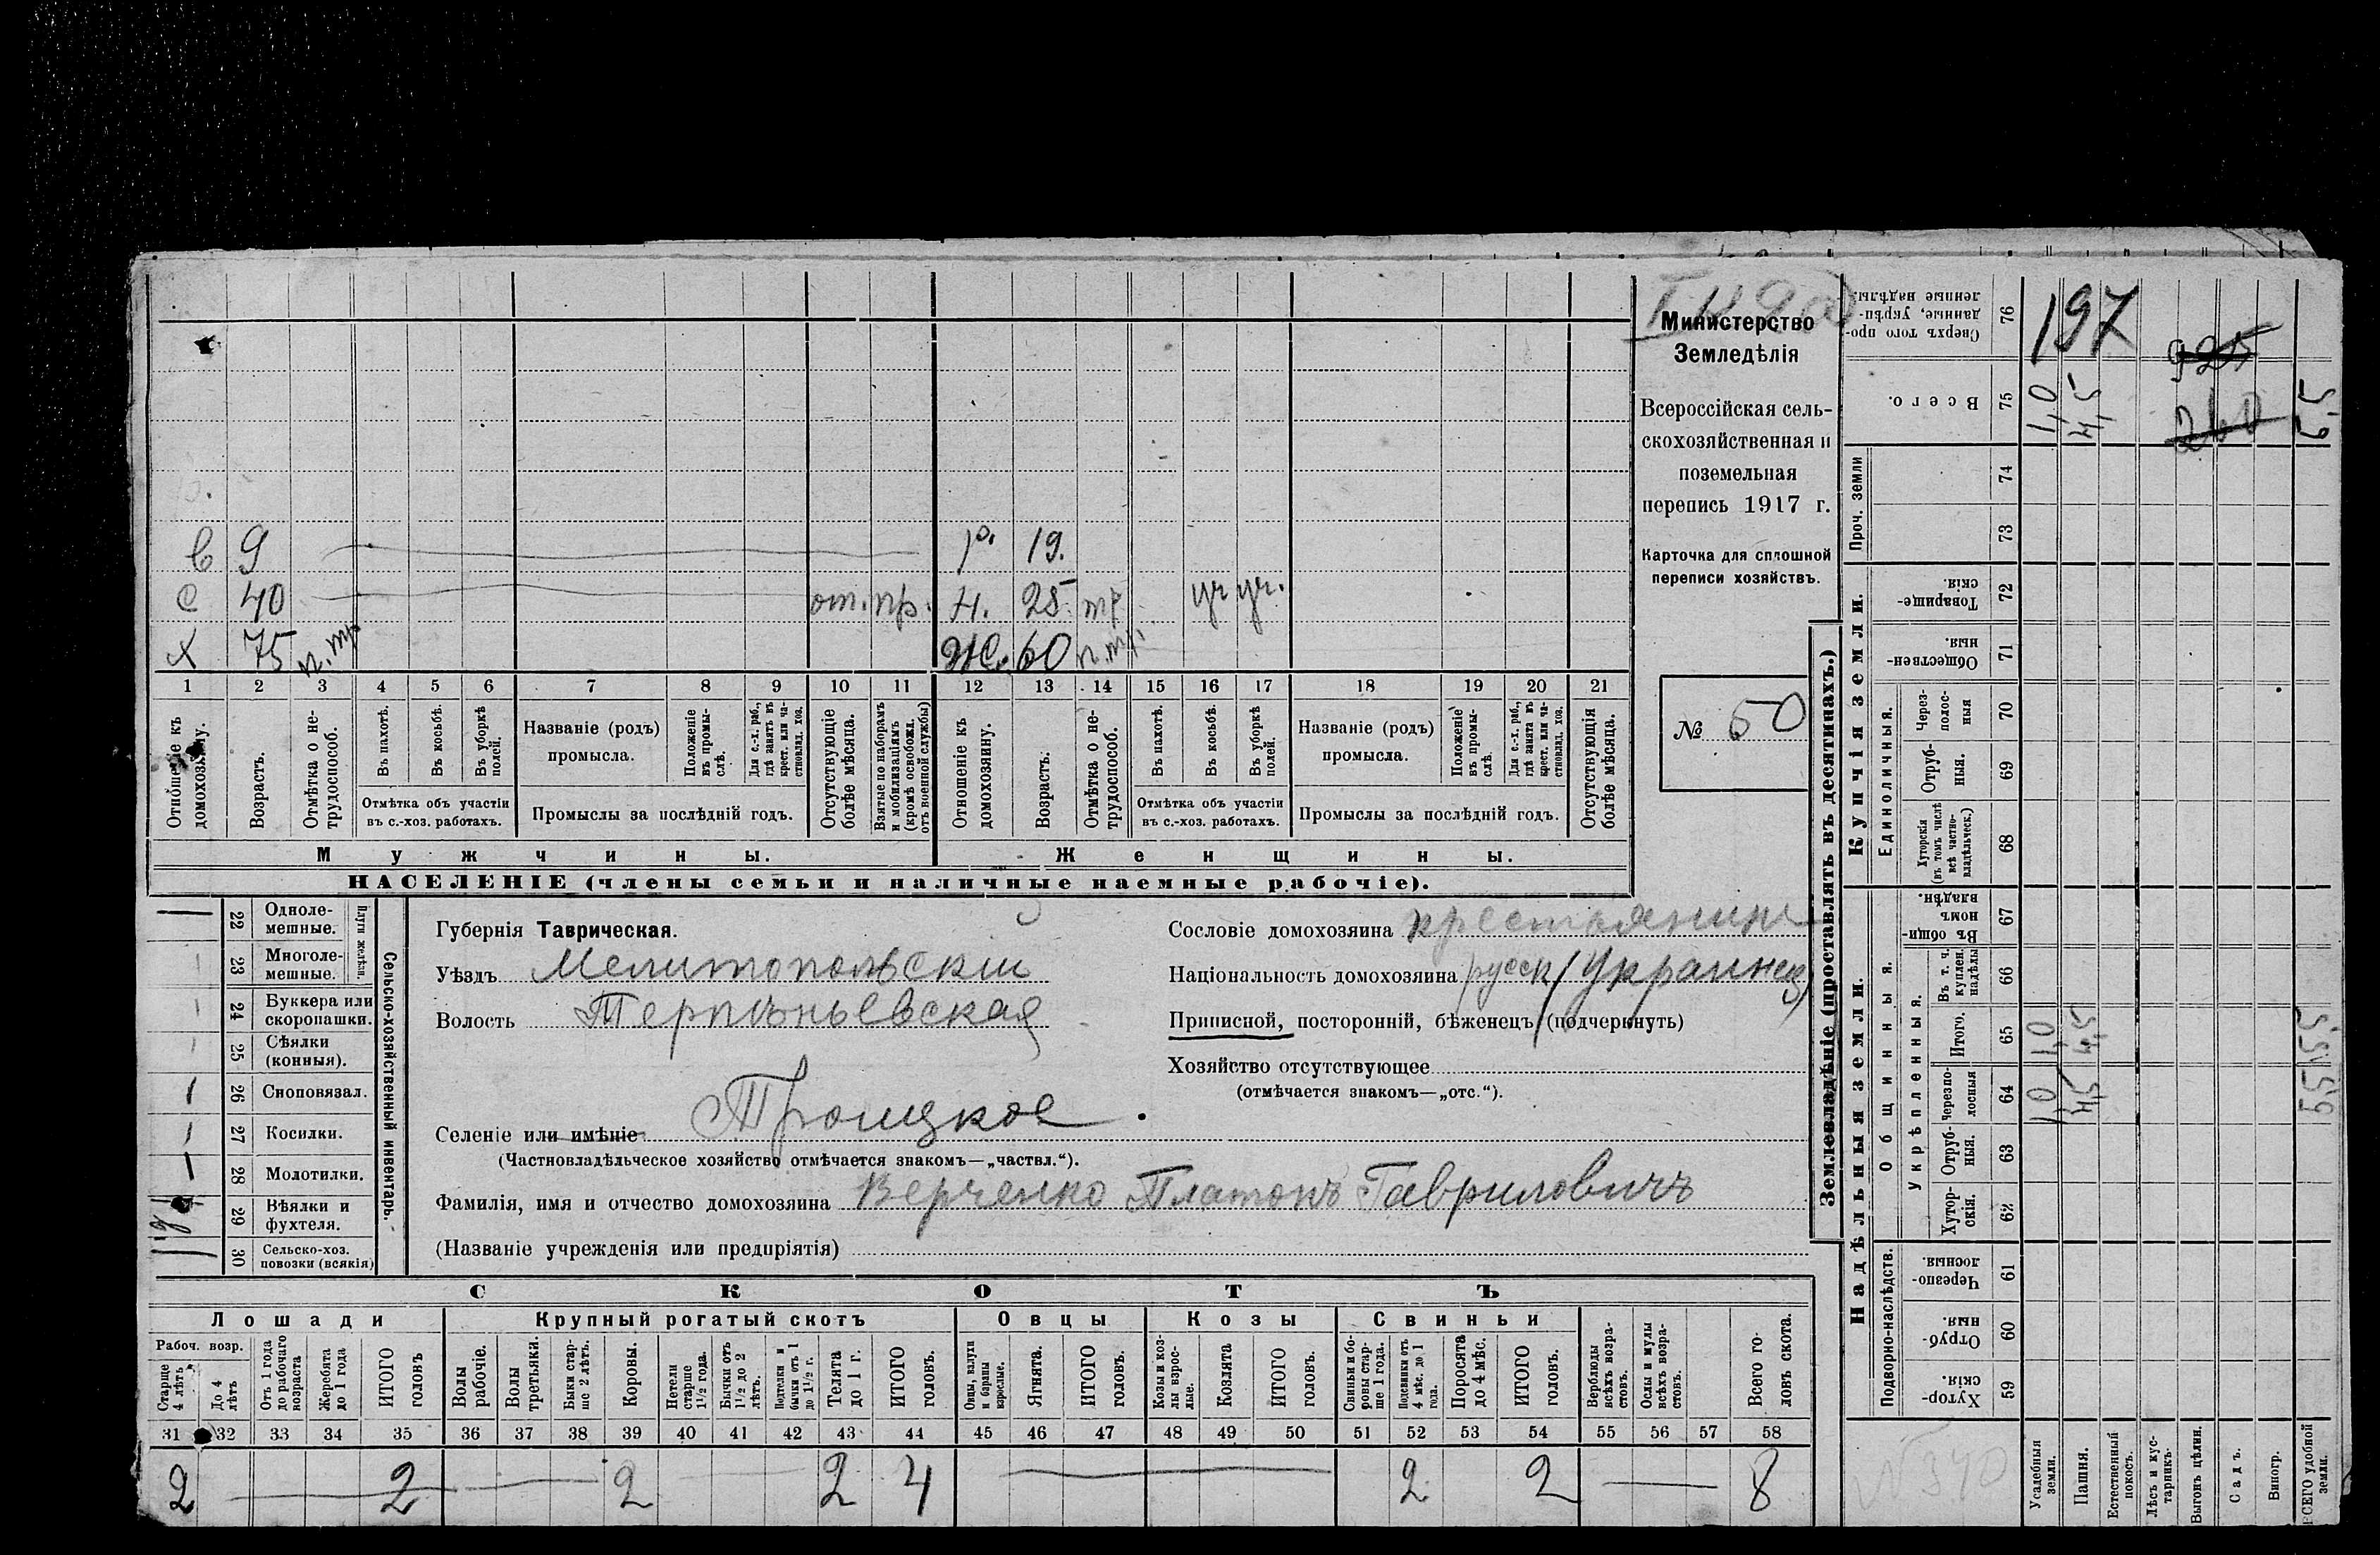 197
925
260
Министерство
Земледѣлія
Всероссійская сель-
скохозяйственная и
поземельная
перепись 1917 г.
Карточка для сплошной
переписи хозяйствъ.
№ 50
в 9 р. 19.
с 40 от. пр. н. 25 тр уч уч.
х 75 п. тр. Ж. 60 п. тр.
1 2 3 4 5 6 7 8 9 10 11 12 13 14 15 16 17 18 19 20 21
Отношеніе къ домохозяину.
Возрастъ.
Отмѣтка о не-трудоспособ.
Въ пахотѣ.
Въ косьбѣ.
Въ уборкѣ полей.
Отмѣтка объ участіи
въ с.-хоз. работахъ.
Названіе (родъ)
промысла.
Положеніе въ промы-слѣ.
Для с.-х. раб., гдѣ занятъ въ крест. или ча-стновлад. хоз.
Промыслы за послѣдній годъ.
Отсутствующіе болѣе мѣсяца.
Взятые по наборамъ и мобилизаціямъ (кромѣ освобожд. отъ военной службы)
Отношеніе къ домохозяину.
Возрастъ.
Отмѣтка о не-трудоспособ.
Въ пахотѣ.
Въ косьбѣ.
Въ уборкѣ полей.
Отмѣтка объ участіи
въ с.-хоз. работахъ.
Названіе (родъ)
промысла.
Положеніе въ промы-слѣ.
Для с.-х. раб., гдѣ занята въ крест. или ча-стновлад. хоз.
Промыслы за послѣдній годъ.
Отсутствующія болѣе мѣсяца.
Мужчины.
Женщины.
НАСЕЛЕНІЕ (члены семьи и наличные наемные рабочіе).
Сельско-хозяйственный инвентарь.
Плуги желѣзн.
22 Одноле-мешные.
23 Многоле-мешные.
24 Буккера или скоропашки.
25 Сѣялки (конныя).
26 Сноповязал.
27 Косилки.
28 Молотилки.
29 Вѣялки и фухтеля.
30 Сельско-хоз. повозки (всякія)
Губернія Таврическая.
Уѣздъ Мелитопольскій
Волость Терпѣньевская
Селеніе или имѣніе Троицкое
(Частновладѣльческое хозяйство отмѣчается знакомъ—„частвл.“).
Фамилія, имя и отчество домохозяина Верченко Платонъ Гавриловичъ
(Названіе учрежденія или предпріятія)
Сословіе домохозяина крестьянинъ
Національность домохозяина русск (Украинец)
Приписной, посторонній, бѣженецъ (подчеркнуть)
Хозяйство отсутствующее
(отмѣчается знакомъ—„отс.“).
СКОТЪ
Лошади Крупный рогатый скотъ Овцы Козы Свиньи
Рабоч. возр.
Старше 4 лѣтъ
До 4 лѣтъ
Отъ 1 года до рабочаго возраста
Жеребята до 1 года
ИТОГО головъ
Волы рабочіе.
Волы третьяки.
Быки стар-ше 2 лѣтъ.
Коровы.
Нетели старше 1 1/2 года.
Бычки отъ 1 1/2 до 2 лѣтъ.
Подтелки и бычки отъ 1 до 1 1/2 г.
Телята до 1 г.
ИТОГО головъ.
Овцы, валухи и бараны взрослые.
Ягнята.
ИТОГО головъ.
Козы и коз-лы взрос-лые.
Козлята
ИТОГО головъ.
Свиньи и бо-ровы стар-ше 1 года.
Подсвинки отъ 4 мѣс. до 1 года.
Поросята до 4 мѣс.
ИТОГО головъ.
Верблюды всѣхъ возра-стовъ.
Ослы и мулы всѣхъ возра-стовъ.
Всего го-ловъ скота.
31 32 33 34 35 36 37 38 39 40 41 42 43 44 45 46 47 48 49 50 51 52 53 54 55 56 57 58
2 2 2 2 4 2 2 8
Землевладѣніе (проставлять въ десятинахъ.)
Купчія земли.
Надѣльныя земли.
Сверхъ того про-данные, укрѣп-ленные надѣлы. 76
Всего. 75 1,0 4,5 5,5
Проч. земли
74
73
Товарище-скія. 72
Обществен-ныя. 71
Единоличныя.
Через-полос-ныя 70
Отруб-ныя. 69
Хуторскія (въ томъ числѣ всѣ частно-владѣльческ.) 68
Общинныя.
Въ общин-номъ владѣн. 67
Укрѣпленныя.
Въ т. ч. куплен. надѣлы 66
Итого. 65 1,0 4,5 5,5
Черезпо-лосныя 64 1,0 4,5 5,5
Отруб-ныя. 63
Хутор-скія. 62
Подворно-наслѣдств.
Черезпо-лосныя. 61
Отруб-ныя. 60
Хутор-скія. 59
№ 340
Усадебныя земли.
Пашня.
Естественный покосъ.
Лѣсъ и кус-тарникъ.
Выгонъ цѣлин.
Садъ.
Виногр.
ВСЕГО удобной земли.